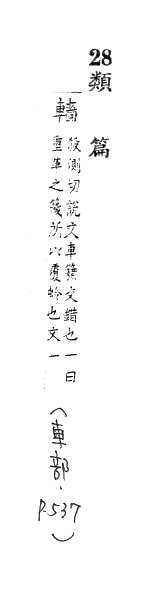 28 類篇
轖 殺側切說文車籍交錯也一曰
重革之 所以覆軨也文一
(車部.
P.537)